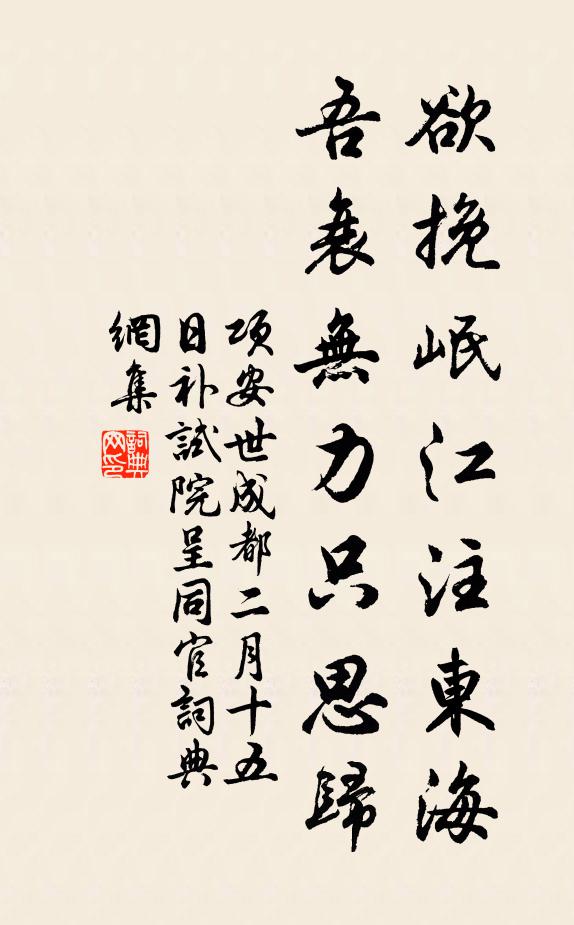 欲挽岷江注東海
吾衰無力只思歸
項安世成都二月十五
日补試院呈同官詞典
網集
詞典
网印